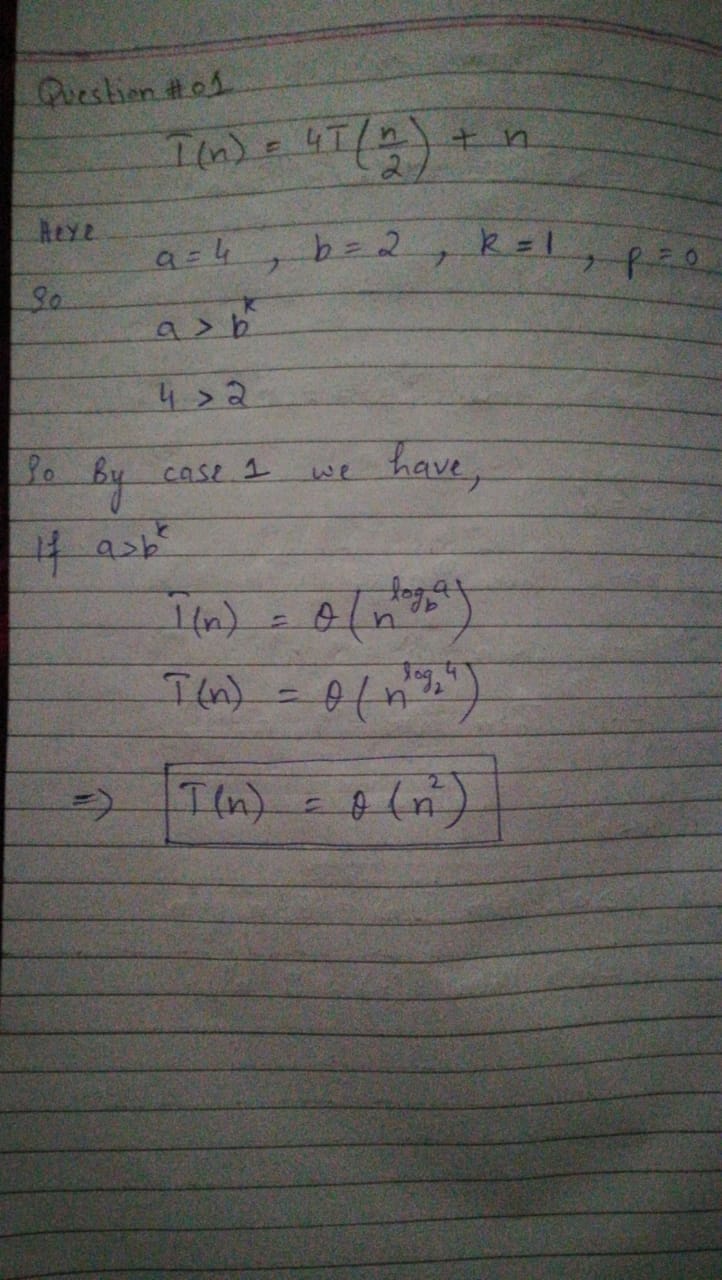 Question # 01
T(n) = 4T(n/2) + n
Here
a = 4 , b = 2 , k = 1 , p = 0
So
a > b^k
4 > 2
So By case 1 we have,
If a>b^k
T(n) = θ(n^log_b a)
T(n) = θ(n^log_2 4)
=> T(n) = θ(n^2)